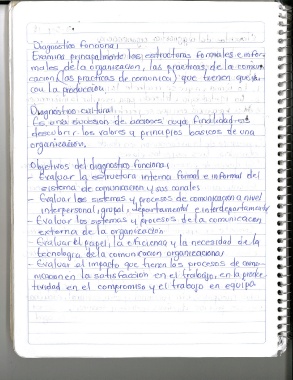 Diagnostico funcional
Examina principalmente las estructuras formales e infor
males de la organizacion, las practicas, de la comuni
cacion (las practicas de comunica) que tienen que
con la produccion.
Diagnostico cultural
Es una sucesion de acciones cuya finalidad es
descubrir los valores y principios basicos de una
organizacion.
Objetivos del diagnostico funcional
- Evaluar la estructura interna formal e informal del
sistema de comunicacion y sus canales
- Evaluar los sistemas y procesos de comunicacion a nivel
interpersonal, grupal, departamental e interdepartamental
- Evaluar los sistemas y procesos de la comunicacion
externa de la organizacion
- Evaluar el papel, la eficiencia y la necesidad de la
tecnologia de la comunicacion organizacional
- Evaluar el impacto que tienen los procesos de comu
nicacion en la satisfaccion en el trabajo, en la produc
tividad en el compromiso y el trabajo en equipo